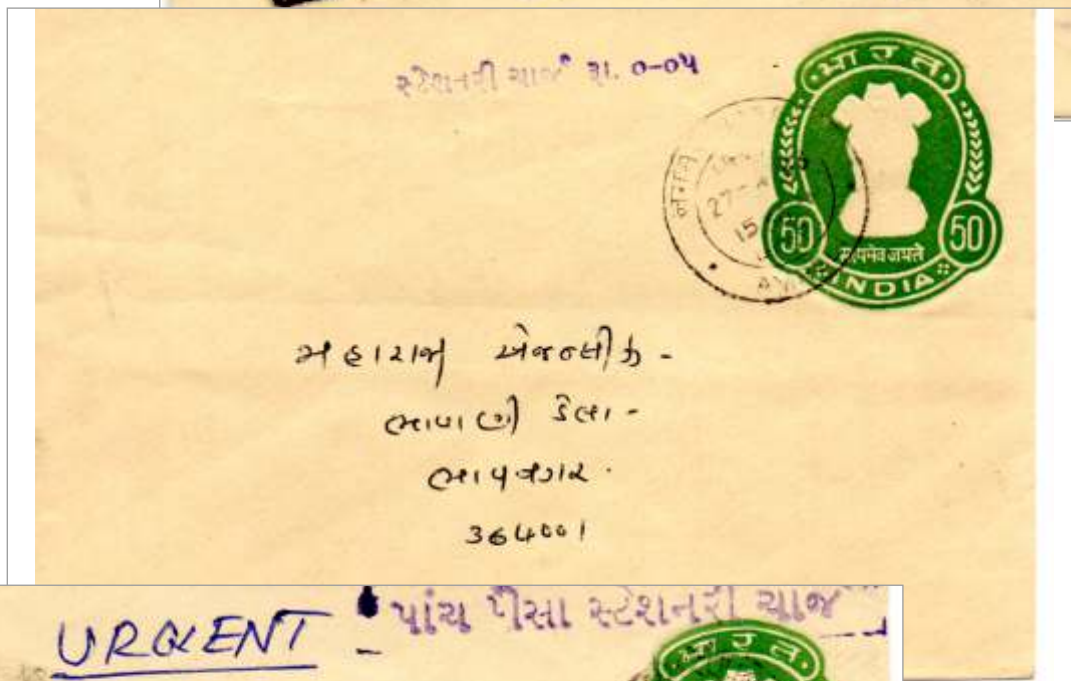 સ્ટેશનરી ચાર્જ રૂા. ૦-૦૫
भारत
27-
15
50 50
सत्यमेव जयते
INDIA
મહારાજા એજન્સીઝ -
ડેલા -
ભાવનગર.
364001
URGENT - પાંચ પૈસા સ્ટેશનરી ચાર્જ
भारत